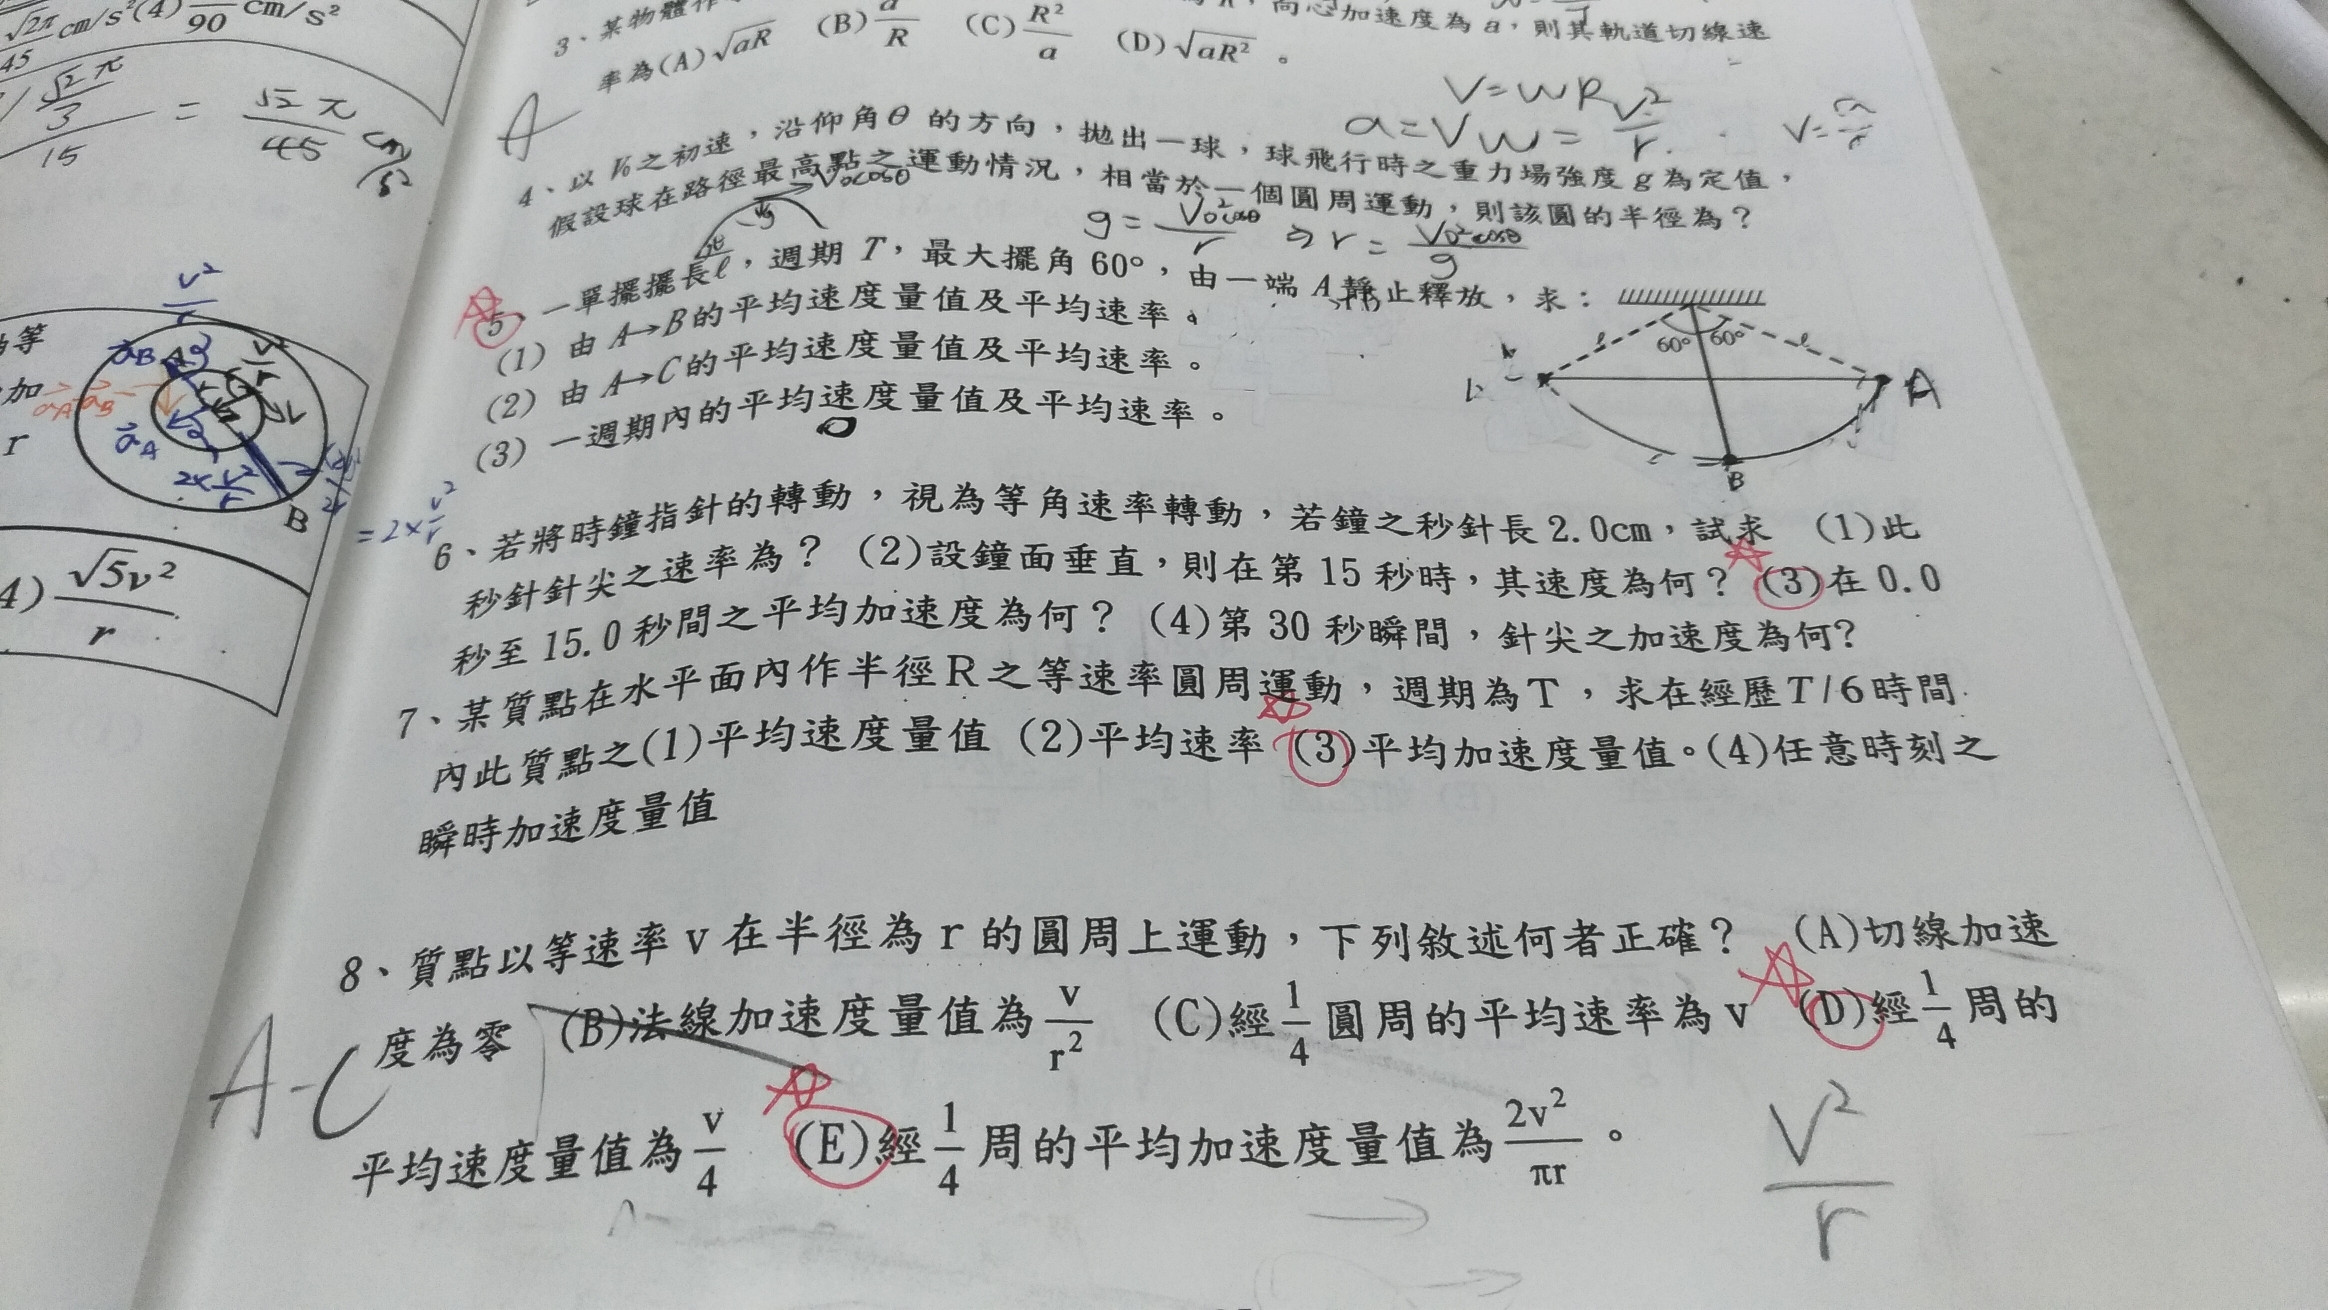 √2π/45 cm/s²(4) /90 cm/s²
√2π/3 / 15 = √2π/45 cm/s²
v²/r
等
加
r
4) √5v²/r
a⃗B
a⃗A-a⃗B
a⃗A
2×v²/r
B
=2×v²/r
3、某物體作
,向心加速度為a,則其軌道切線速
率為(A)√aR (B)a/R (C)R²/a (D)√aR² 。
A
V=WR
a=VW=V²/r
4、以V₀之初速,沿仰角θ的方向,拋出一球,球飛行時之重力場強度g為定值,
假設球在路徑最高點之運動情況,相當於一個圓周運動,則該圓的半徑為?
V₀cosθ
g
g=V₀²cosθ/r ⇒ r=V₀²cosθ/g
5、一單擺擺長ℓ,週期T,最大擺角60°,由一端A靜止釋放,求:
(1) 由A→B的平均速度量值及平均速率。
(2) 由A→C的平均速度量值及平均速率。
(3) 一週期內的平均速度量值及平均速率。
0
60° 60°
ℓ ℓ
A
B
6、若將時鐘指針的轉動,視為等角速率轉動,若鐘之秒針長2.0cm,試求 (1)此
秒針針尖之速率為? (2)設鐘面垂直,則在第15秒時,其速度為何? (3)在0.0
秒至15.0秒間之平均加速度為何? (4)第30秒瞬間,針尖之加速度為何?
7、某質點在水平面內作半徑R之等速率圓周運動,週期為T,求在經歷T/6時間
內此質點之(1)平均速度量值 (2)平均速率 (3)平均加速度量值。(4)任意時刻之
瞬時加速度量值
8、質點以等速率v在半徑為r的圓周上運動,下列敘述何者正確? (A)切線加速
度為零 (B)法線加速度量值為v/r² (C)經1/4圓周的平均速率為v (D)經1/4周的
平均速度量值為v/4 (E)經1/4周的平均加速度量值為2v²/πr。
A-C
V²/r